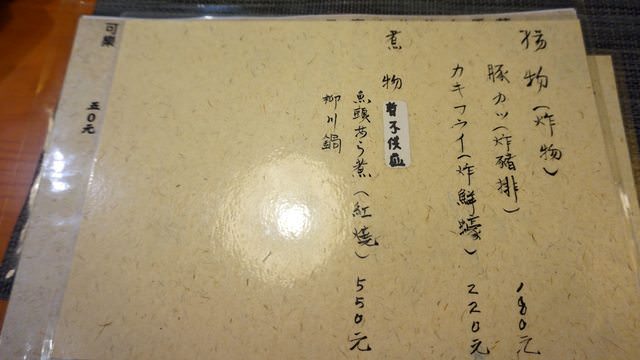 揚物(炸物)
豚カツ(炸豬排) 180元
カキフライ(炸鮮蠔) 220元
煮物
暫不供應
魚頭あら煮(紅燒) 550元
柳川鍋
可樂 五0元